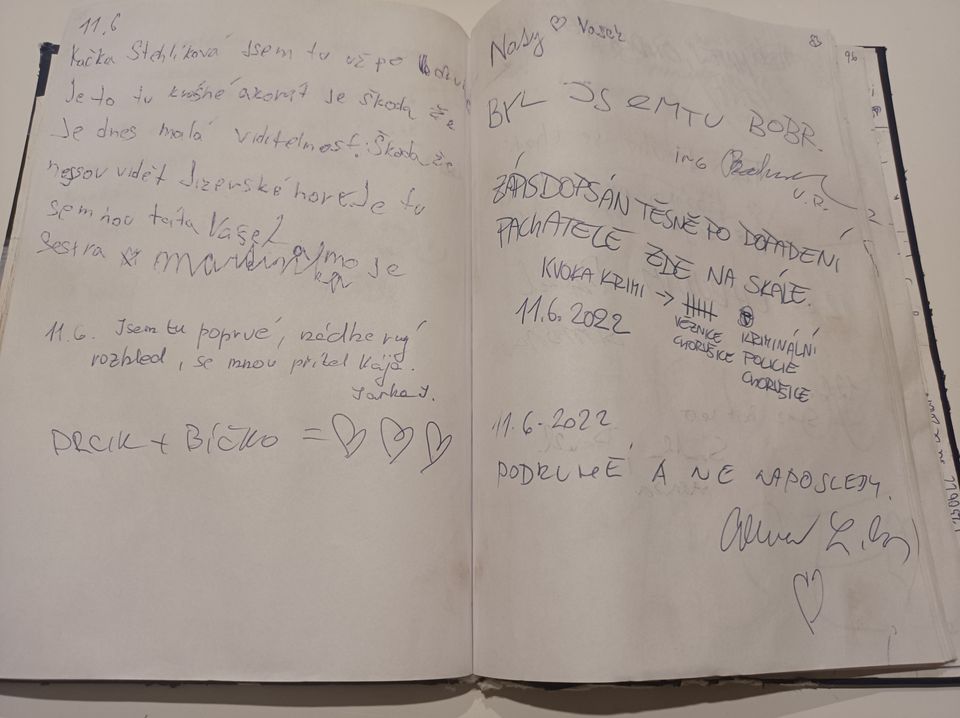 11.6
Kačka Stehlíková Jsem tu už po
Je to tu krásné akorát je škoda že
Je dnes malá viditelnost. Škoda že
nejsou vidět Jizerské hory. Je tu
semnou táta Vašek a
sestra Martin mo je
11.6. Jsem tu poprvé, nádherný
rozhled, se mnou přišel Kája.
Jarka J.
DRCIK + BÍČKO =
Naďy ♡ Vašek
96
BYL JSEM TU BOBR.
ing
v.r.
ZÁPIS DOPSÁN TĚSNĚ PO DOPADENÍ
PACHATELE ZDE NA SKÁLE.
KVOKA KRIMI →
11.6.2022
VĚZNICE
CHORUŠICE
KRIMINÁLNÍ
POLICIE
CHORUŠICE
11.6.2022
PODRUHÉ A NE NAPOSLEDY.